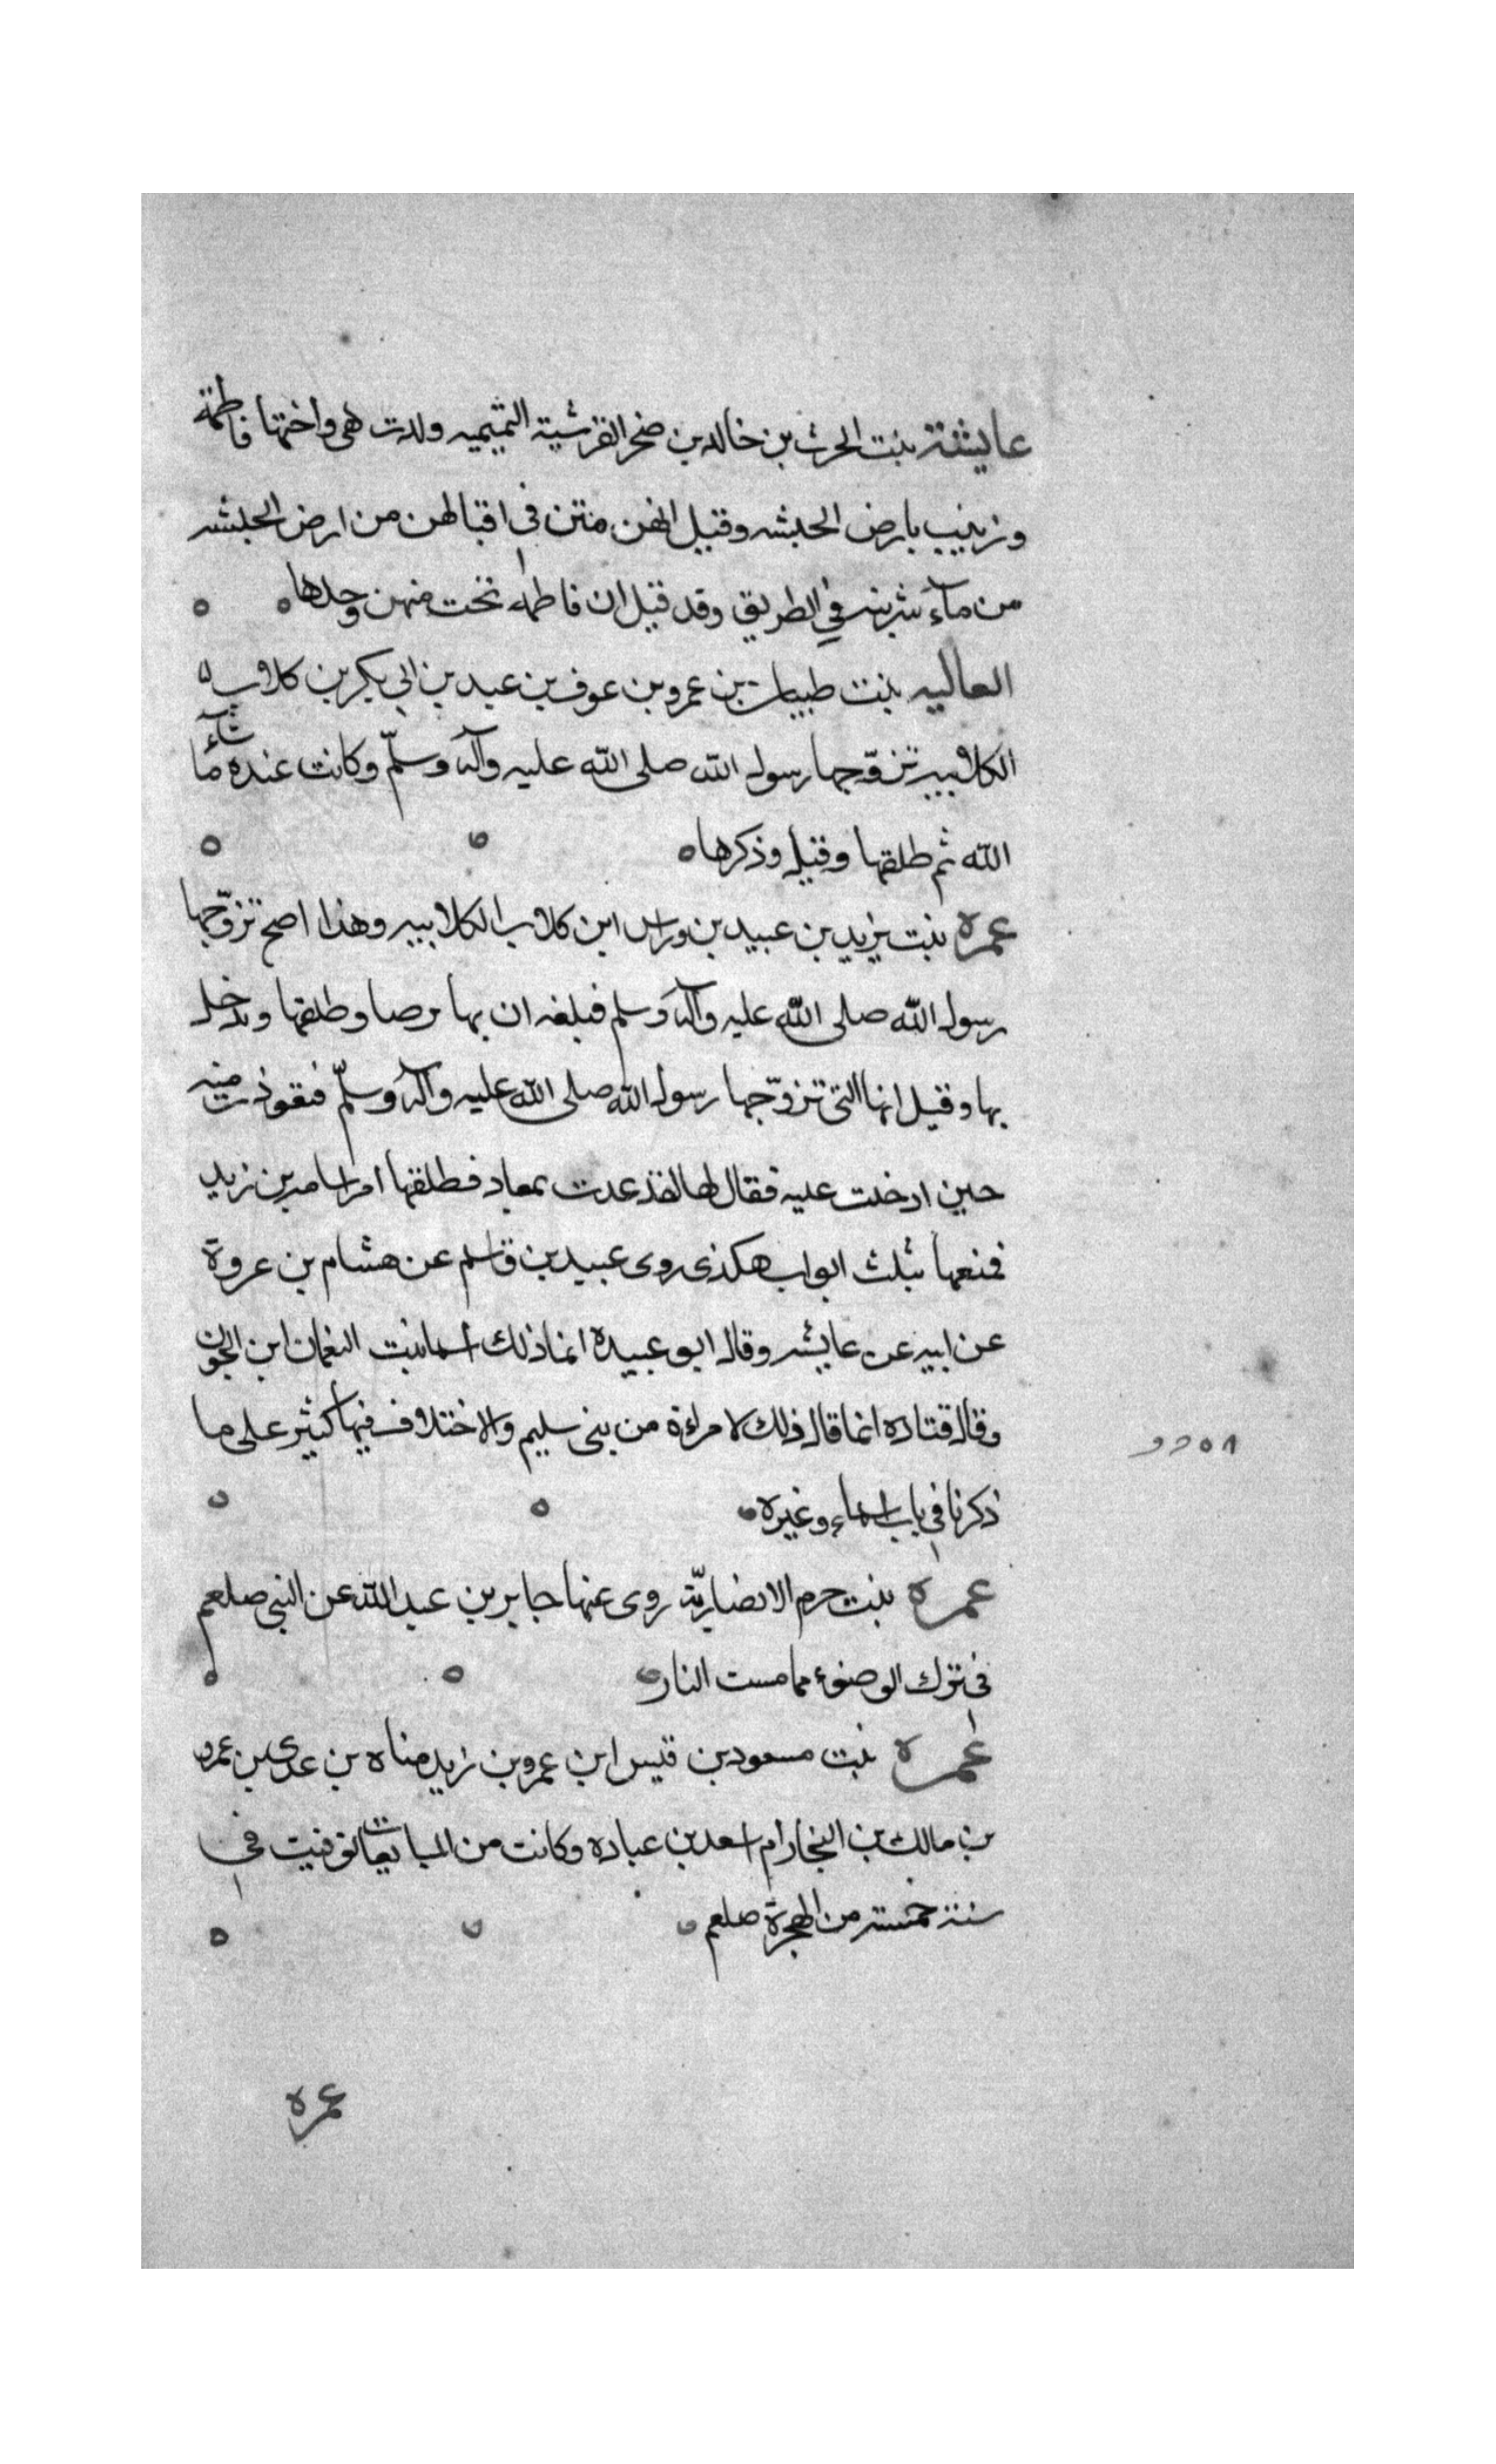 عايشة بنت الحرث بن خالد بن صخر القرشية التميميه ولدت هى واختها فاطمة
وزينب بارض الحبشه وقيل انهن متن فى اقبالهن من ارض الحبشه
من مآء شربنه فى الطريق وقد قيل ان فاطمه نجت منهن وحدها
العاليه بنت ظبيان بن عمرو بن عوف بن عبد بن ابى بكر بن كلاب
الكلابيه تزوّجها رسول الله صلى الله عليه وآله وسلّم وكانت عنده ما شآء
الله ثم طلقها وقيل وذكرها
عمره بنت يزيد بن عبيد بن وراس ابن كلاب الكلابيه وهذا اصح تزوّجها
رسول الله صلى الله عليه وآله وسلم فبلغه ان بها برصا وطلقها ودخل
بها وقيل انها التى تزوّجها رسول الله صلى الله عليه وآله وسلّم فتعوذت منه
حين ادخلت عليه فقال لها لقد عدت بمعاد فطلقها امر اسامه بن زيد
فمنعها بثلث ابواب هكذى روى عبيد بن قاسم عن هشام بن عروة
عن ابيه عن عايشه وقال ابو عبيده انما ذلك اسما بنت النعمان ابن الجون
وقال قتاده انما قال ذلك لامراءة من بنى سليم والاختلاف فيها كثير على ما
ذكرنا فى باب اسماء وغيره
عمره بنت حرم الانصاريّة روى عنها جابر بن عبد الله عن النبى صلعم
فى ترك الوضوء مما مست النار
عمره بنت مسعود بن قيس ابن عمرو بن زيد مناه بن عدى بن عمرو
بن مالك بن النجار ام سعد بن عباده وكانت من المبايعات توفيت فى
سنة خمسة من الهجرة صلعم
عمره